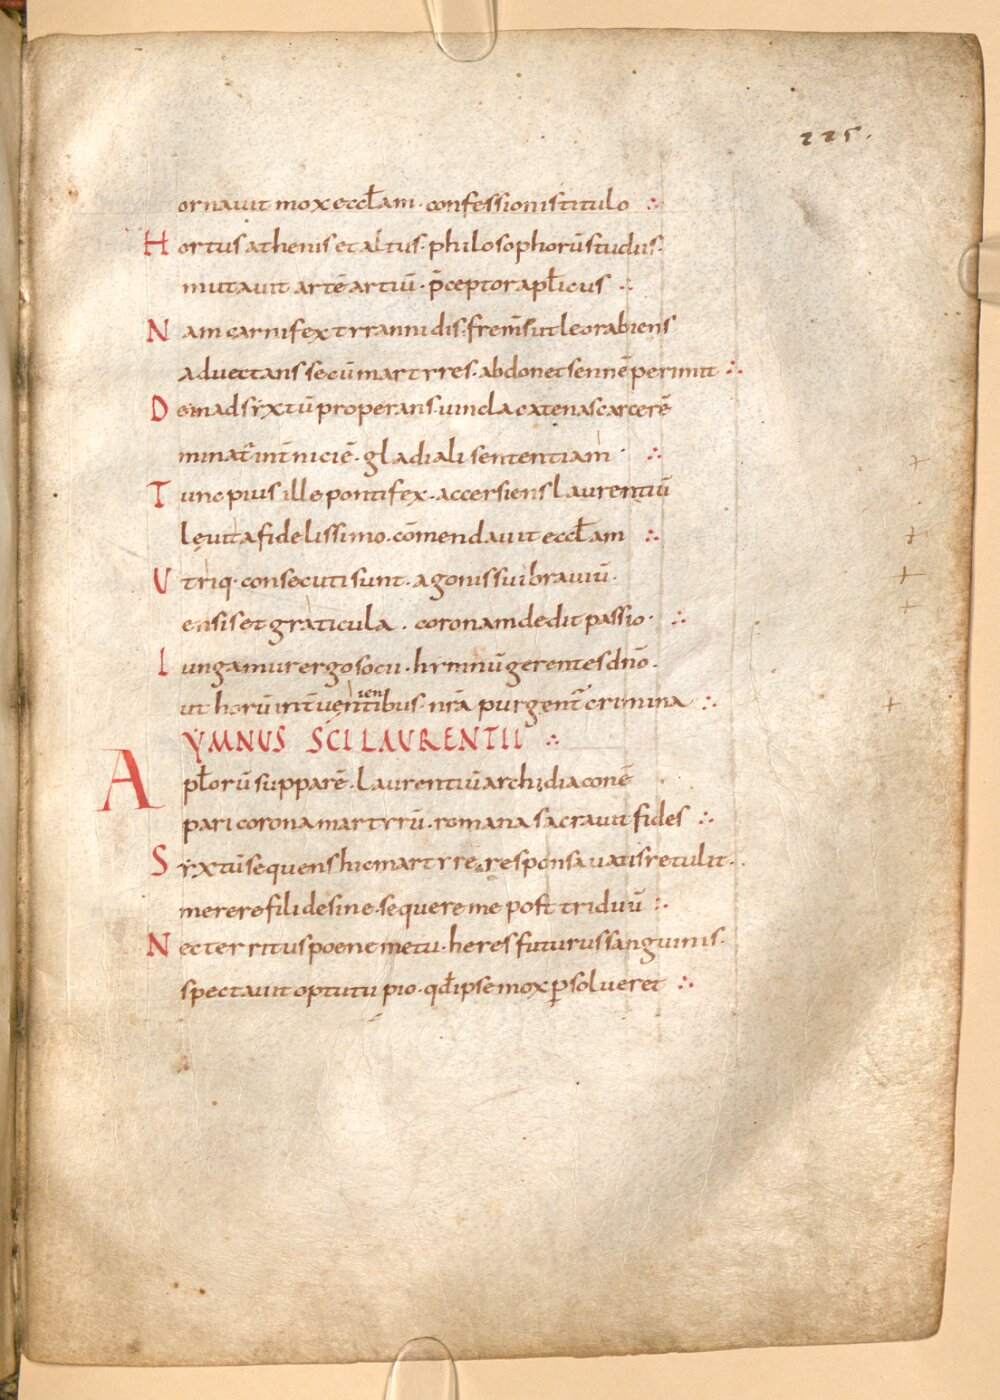 225.
ornauit mox eccłam · confessionis titulo ∴
Hortus athenis et altus · philosophorū studiis ·
mutauit artē artiū · p̄ceptor apłicus ∴
Nam carnifex tyrannidis · fremēs ut leo rabiens
aduectans secū martyres · abdon et sennē perimit ∴
Dein ad syxtū properans · uincla catenas carcerē
minat̄ int̄niciē · gladiali sententiam · ∴
Tunc pius ille pontifex · accersiens laurentiū
leuita fidelissimo · cōmendauit eccłam ∴
Utriq· consecuti sunt · agonis sui brauiū ·
ensis et graticula · coronam dedit passio · ∴
Iungamur ergo socii · hymnū gerentes dn̄o ·
ien
ut horū int̄uentibus · nr̄a purgent̄ crimina ∴
YMNUS SCI LAURENTII ∴
Apłorū supparē · laurentiū archidiaconē
pari corona martyrū · romana sacrauit fides ∴
Syxtū sequens hic martyrē · responsa uatis retulit ·
merere fili desine · sequere me post triduū ∴
Nec territus poene metu · heres futurus sanguinis ·
spectauit optutu pio · qđ ipse mox p̱solueret ∴